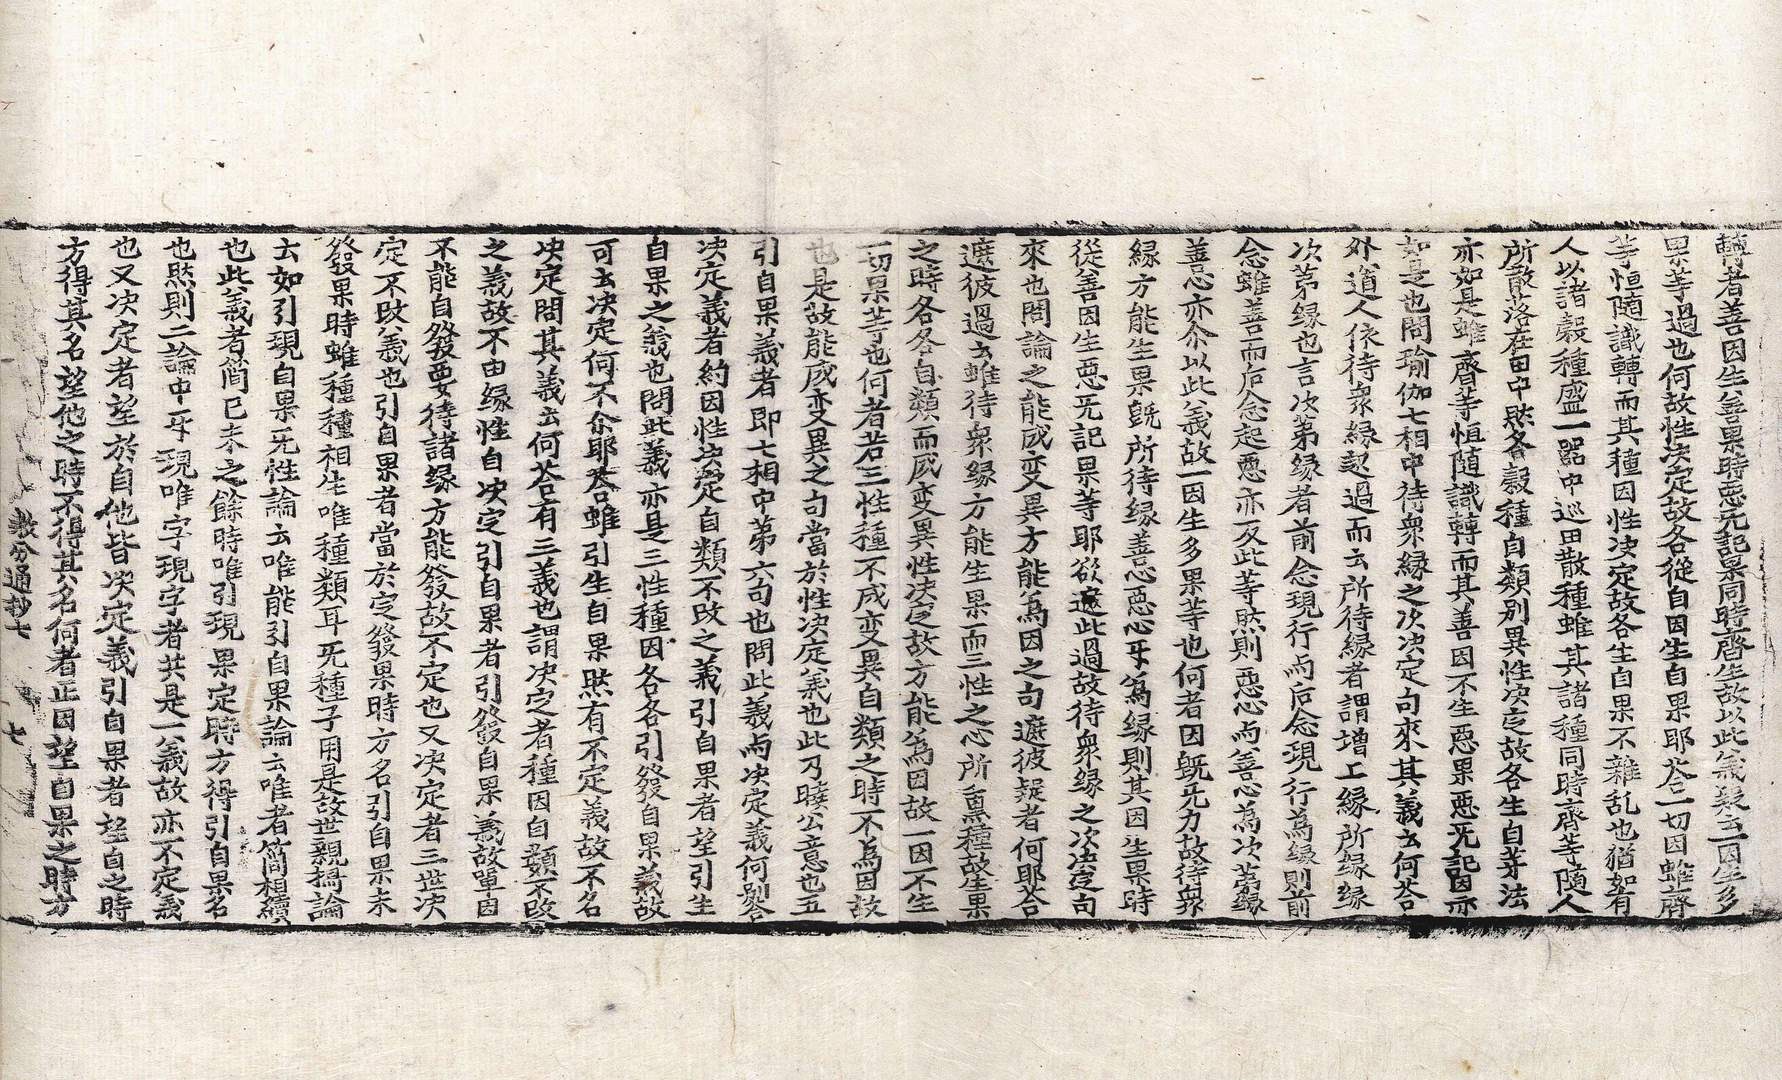 轉者善因生善果時惡无記果同時齊生故以此義疑云一因生多
果等過也何故性决定故各從自因生自果耶荅一切因雖齊
等恒隨識轉而其種因性决定故各生自果不雜乱也猶如有
人以諸穀種盛一器中巡田散種雖其諸種同時齊等隨人
所散落在田中然各穀種自類別異性决定故各生自芽法
亦如是雖齊等恒隨識轉而其善因不生惡果惡无記因亦
如是也問瑜伽七相中待衆縁之次决定句來其義云何荅
外道人依待衆縁起過而云所待縁者謂增上縁所縁縁
次第縁也言次第縁者前念現行而后念現行為縁則前
念雖善而后念起惡亦反此等然則惡心而善心為次第縁
善心亦尒以此義故一因生多果等也何者因旣无力故待衆
縁方能生果旣所待縁善心惡心互為縁則其因生果時
從善因生惡无記果等耶欲遮此過故待衆縁之次决定句
來也問論之能成变異方能為因之句遮彼疑者何耶荅
遮彼過云雖待衆縁方能生果而三性之心所熏種故生果
之時各各自類而成变異性决定故方能為因故一因不生
一切果等也何者若三性種不成变異自類之時不為因故
也是故能成变異之句當於性决定義也此乃曉公意也五
引自果義者即七相中第六句也問此義而决定義何別荅
决定義者約因性决定自類不改之義引自果者望引生
自果之義也問此義亦是三性種因各各引發自果義故
可云决定何不尒耶荅雖引生自果然有不定義故不名
决定問其義云何荅有三義也謂决定者種因自類不改
之義故不由縁性自决定引自果者引發自果義故單因
不能自發要待諸縁方能發故不定也又决定者三世决
定不改義也引自果者當於定發果時方名引自果未
發果時雖種種相生唯種類耳无種子用是故世親攝論
云如引現自果无性論云唯能引自果論云唯者簡相續
也此義者簡已未之餘時唯引現果定時方得引自果名
也然則二論中互現唯字現字者共是一義故亦不定義
也又决定者望於自他皆决定義引自果者望自之時
方得其名望他之時不得其名何者正因望自果之時方
教分通抄七　七